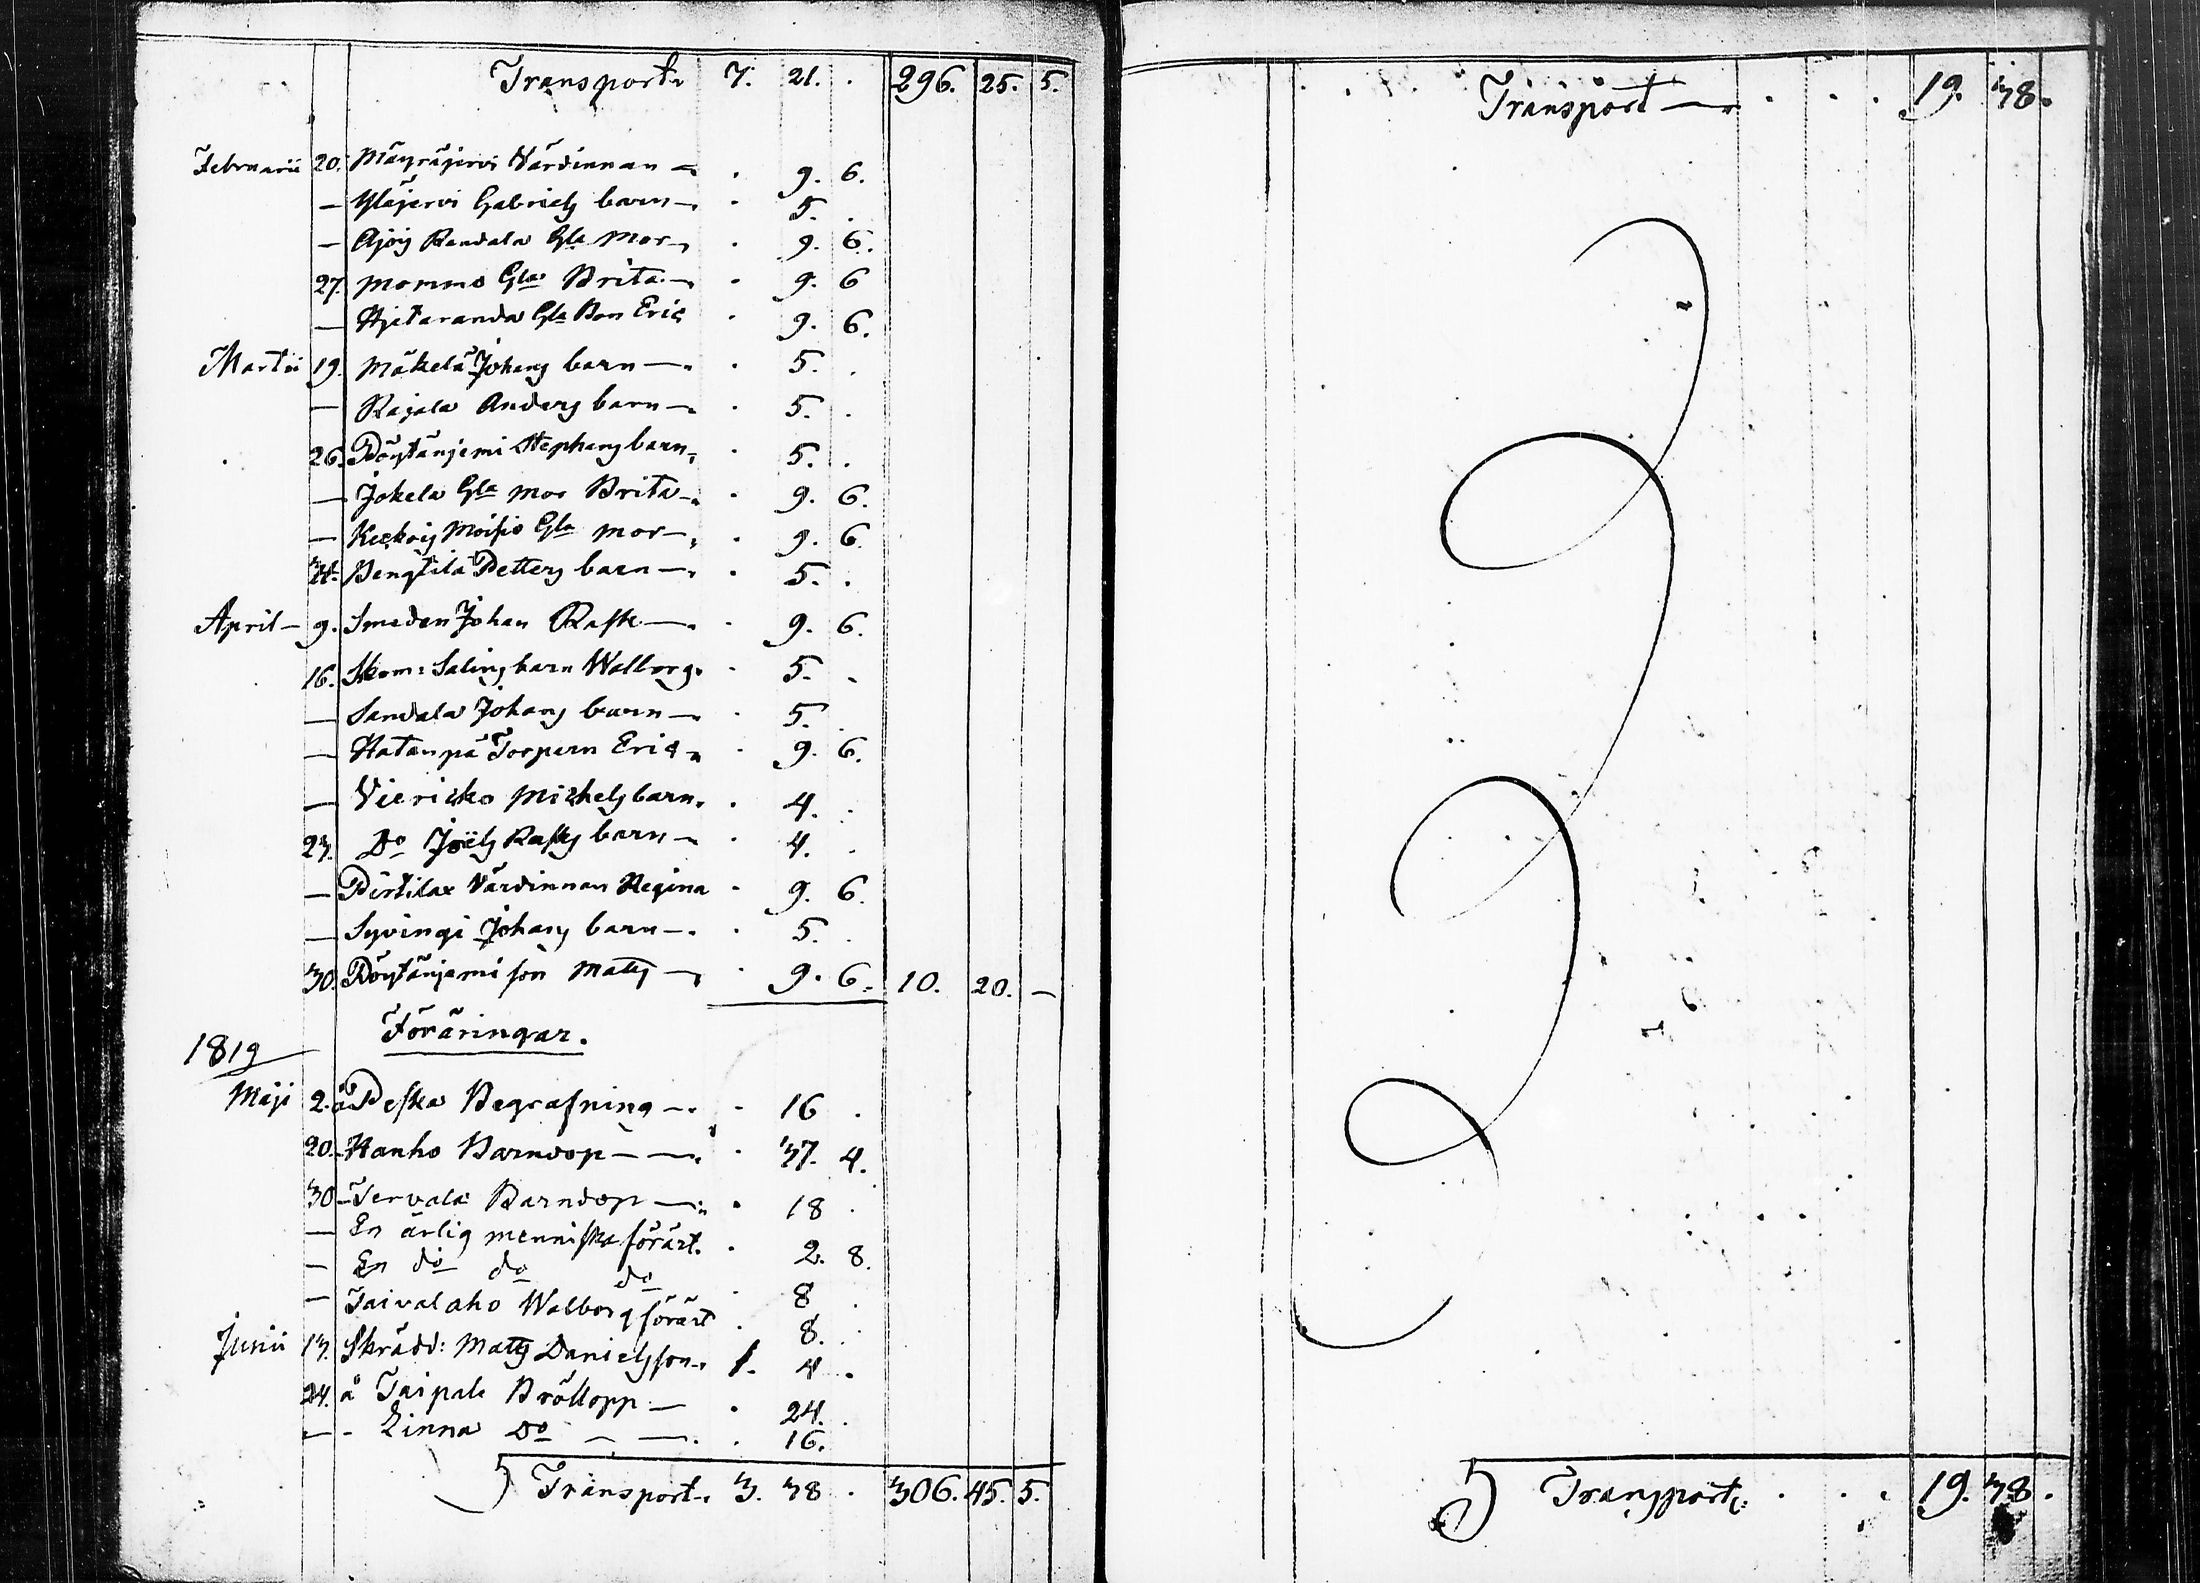 Transport 7. 21. . 296. 25. 5.
Februarii 20. Mäyräjervi Värdinnan — . 9. 6.
— Ylájervi Gabriels barn — . 5. .
— Ajois Randala Gla Mor — . 9. 6.
27. Mommo Gla Brita — . 9. 6
— Hjetaranda Gla Bon Eric . 9. 6.
Martii 19. Mäkelä Johans barn — . 5. .
— Rajala Anders barn — . 5. .
26. Pöytänjemi Stephans barn . 5. .
— Jokela Gla Mor Brita — . 9. 6.
— Moisio Gla Mor — . 9. 6.
Bengtilä Petters barn — . 5. .
April — 9. Smeden Johan Rask — . 9. 6.
16. Skom: Salins barn Walborg . 5. .
— Sandala Johans barn — . 5. .
— Hatanpä Torparn Eric . 9. 6.
— Viericko Michels barn . 4. .
23. Do Joëls Rasks barn — . 4. .
— Pertilae Värdinnan Regina . 9. 6.
— Syvingi Johans barn — . 5. .
30. Pöytänjemi son Matts — . 9. 6. 10. 20. —
Föräringar.
1819
Maji 2. å Peska Begrafning — . 16 .
20. — Hanho Barndop — — . 37. 4.
30 — Tervala Barndop — . 18 .
— En ärlig menniska förärt . 2. 8.
— En do do do . 8 .
— Taivalaho Walborg förärt . 8. .
Junii 13. Skrädd: Matts Danielsson 1. 4 .
24. å Taipale Bröllopp — . 24. .
— - Linna Do — — . 16.
Transport 3. 38 . 306. 45. 5.
Transport — . . . 19. 38.
Transport . . . 19. 38.